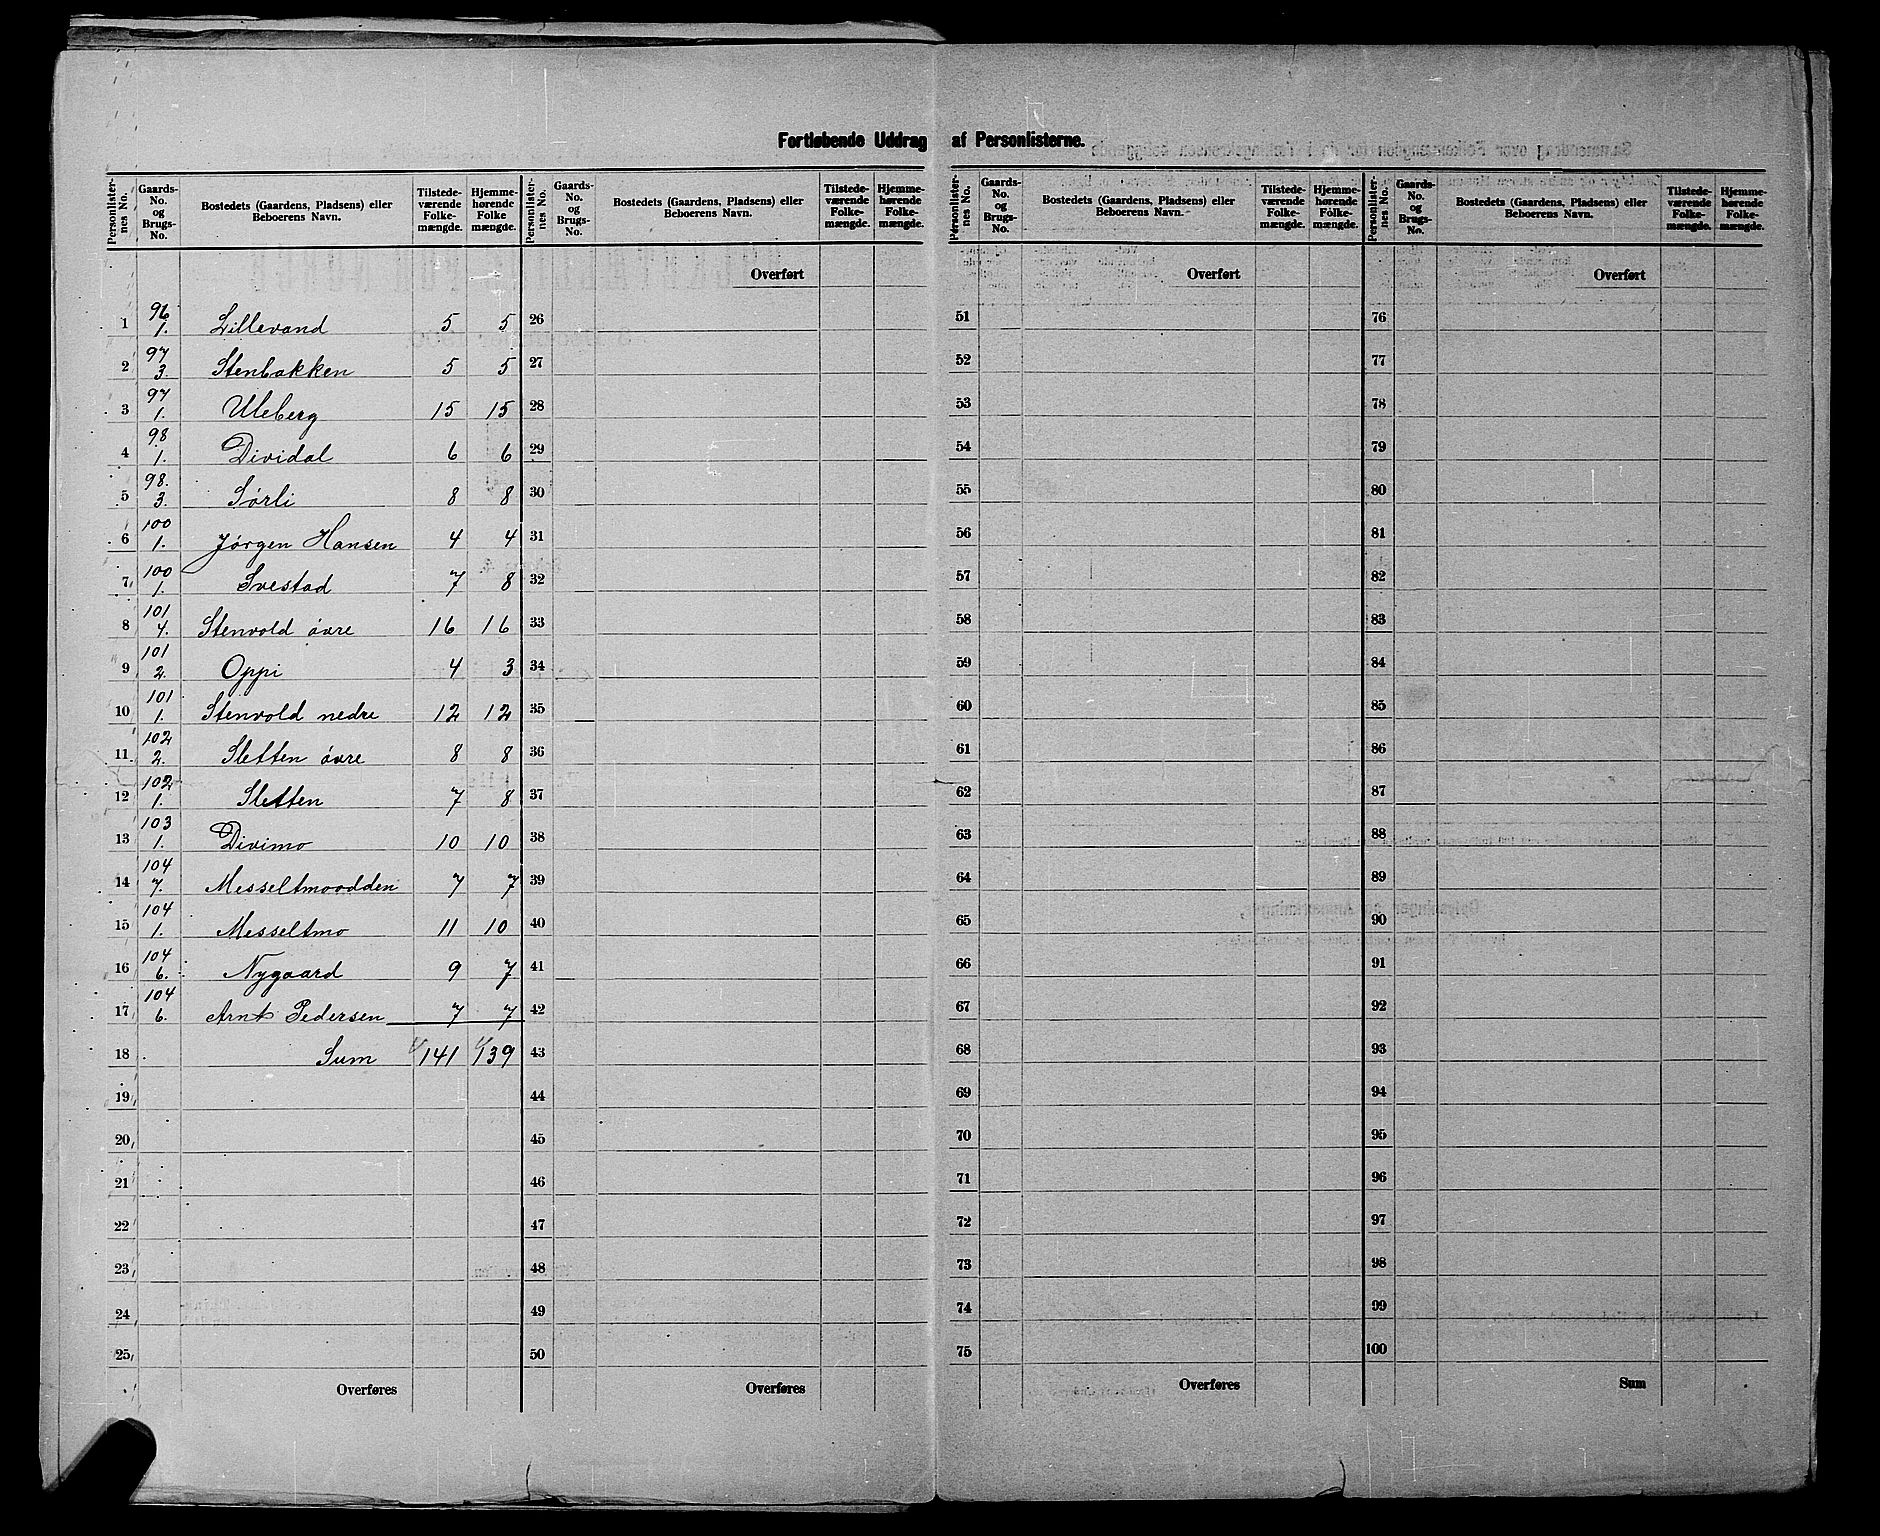 Fortløbende Uddrag af Personlisterne.
Personlisternes No. | Gaards-No. og Brugs-No. | Bostedets (Gaardens, Pladsens) eller Beboerens Navn. | Tilstedeværende Folkemængde. | Hjemmehørende Folkemængde.
Personlisternes No. | Gaards-No. og Brugs-No. | Bostedets (Gaardens, Pladsens) eller Beboerens Navn. | Tilstedeværende Folkemængde. | Hjemmehørende Folkemængde.
Personlisternes No. | Gaards-No. og Brugs-No. | Bostedets (Gaardens, Pladsens) eller Beboerens Navn. | Tilstedeværende Folkemængde. | Hjemmehørende Folkemængde.
Personlisternes No. | Gaards-No. og Brugs-No. | Bostedets (Gaardens, Pladsens) eller Beboerens Navn. | Tilstedeværende Folkemængde. | Hjemmehørende Folkemængde.
Overført Overført Overført
1 96 1. Lillevand 5 5 26 51 76
2 97 3. Stenbakken 5 5 27 52 77
3 97 1. Uleberg 15 15 28 53 78
4 98 1. Dividal 6 6 29 54 79
5 98. 3. Sørli 8 8 30 55 80
6 100 1. Jørgen Hansen 4 4 31 56 81
7 100 1. Svestad 7 8 32 57 82
8 101 4. Stenvold øvre 16 16 33 58 83
9 101 2. Oppi 4 3 34 59 84
10 101 1. Stenvold nedre 12 12 35 60 85
11 102 2. Sletten øvre 8 8 36 61 86
12 102 1. Sletten 7 8 37 62 87
13 103 1. Divimo 10 10 38 63 88
14 104 7. Messeltmoodden 7 7 39 64 89
15 104 1. Messeltmo 11 10 40 65 90
16 104 6. Nygaard 9 7 41 66 91
17 104 6. Arnt Pedersen 7 7 42 67 92
18 Sum 141 139 43 68 93
19 44 69 94
20 45 70 95
21 46 71 96
22 47 72 97
23 48 73 98
24 49 74 99
25 50 75 100
Overføres Overføres Overføres Sum